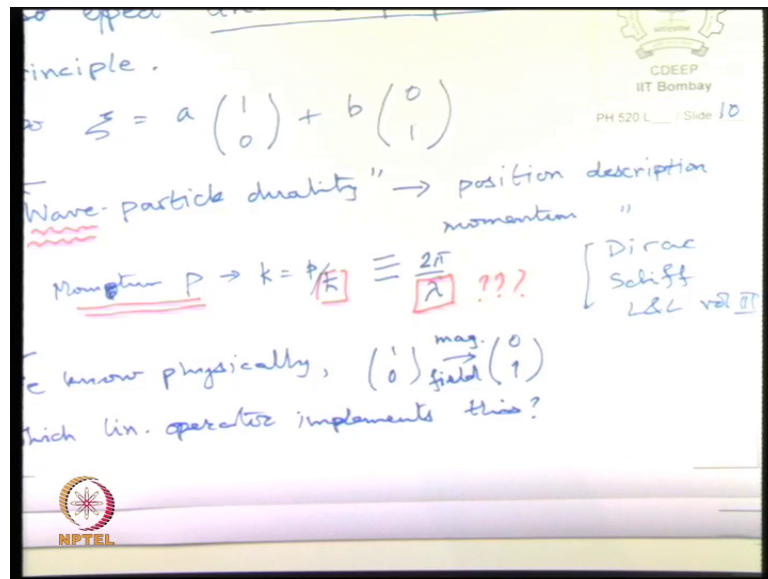 effect
rinciple.
CDEEP
IIT Bombay
PH 520 L___ / Slide 10
ξ = a (1 0) + b (0 1)
Wave-particle duality" → position description
momentum "
Momentum p → k = p/ħ ≡ 2π/λ ???
Dirac
Schiff
L&L vol III
e know physically, (1 0) mag. field → (0 1)
hich lin. operator implements this?
NPTEL